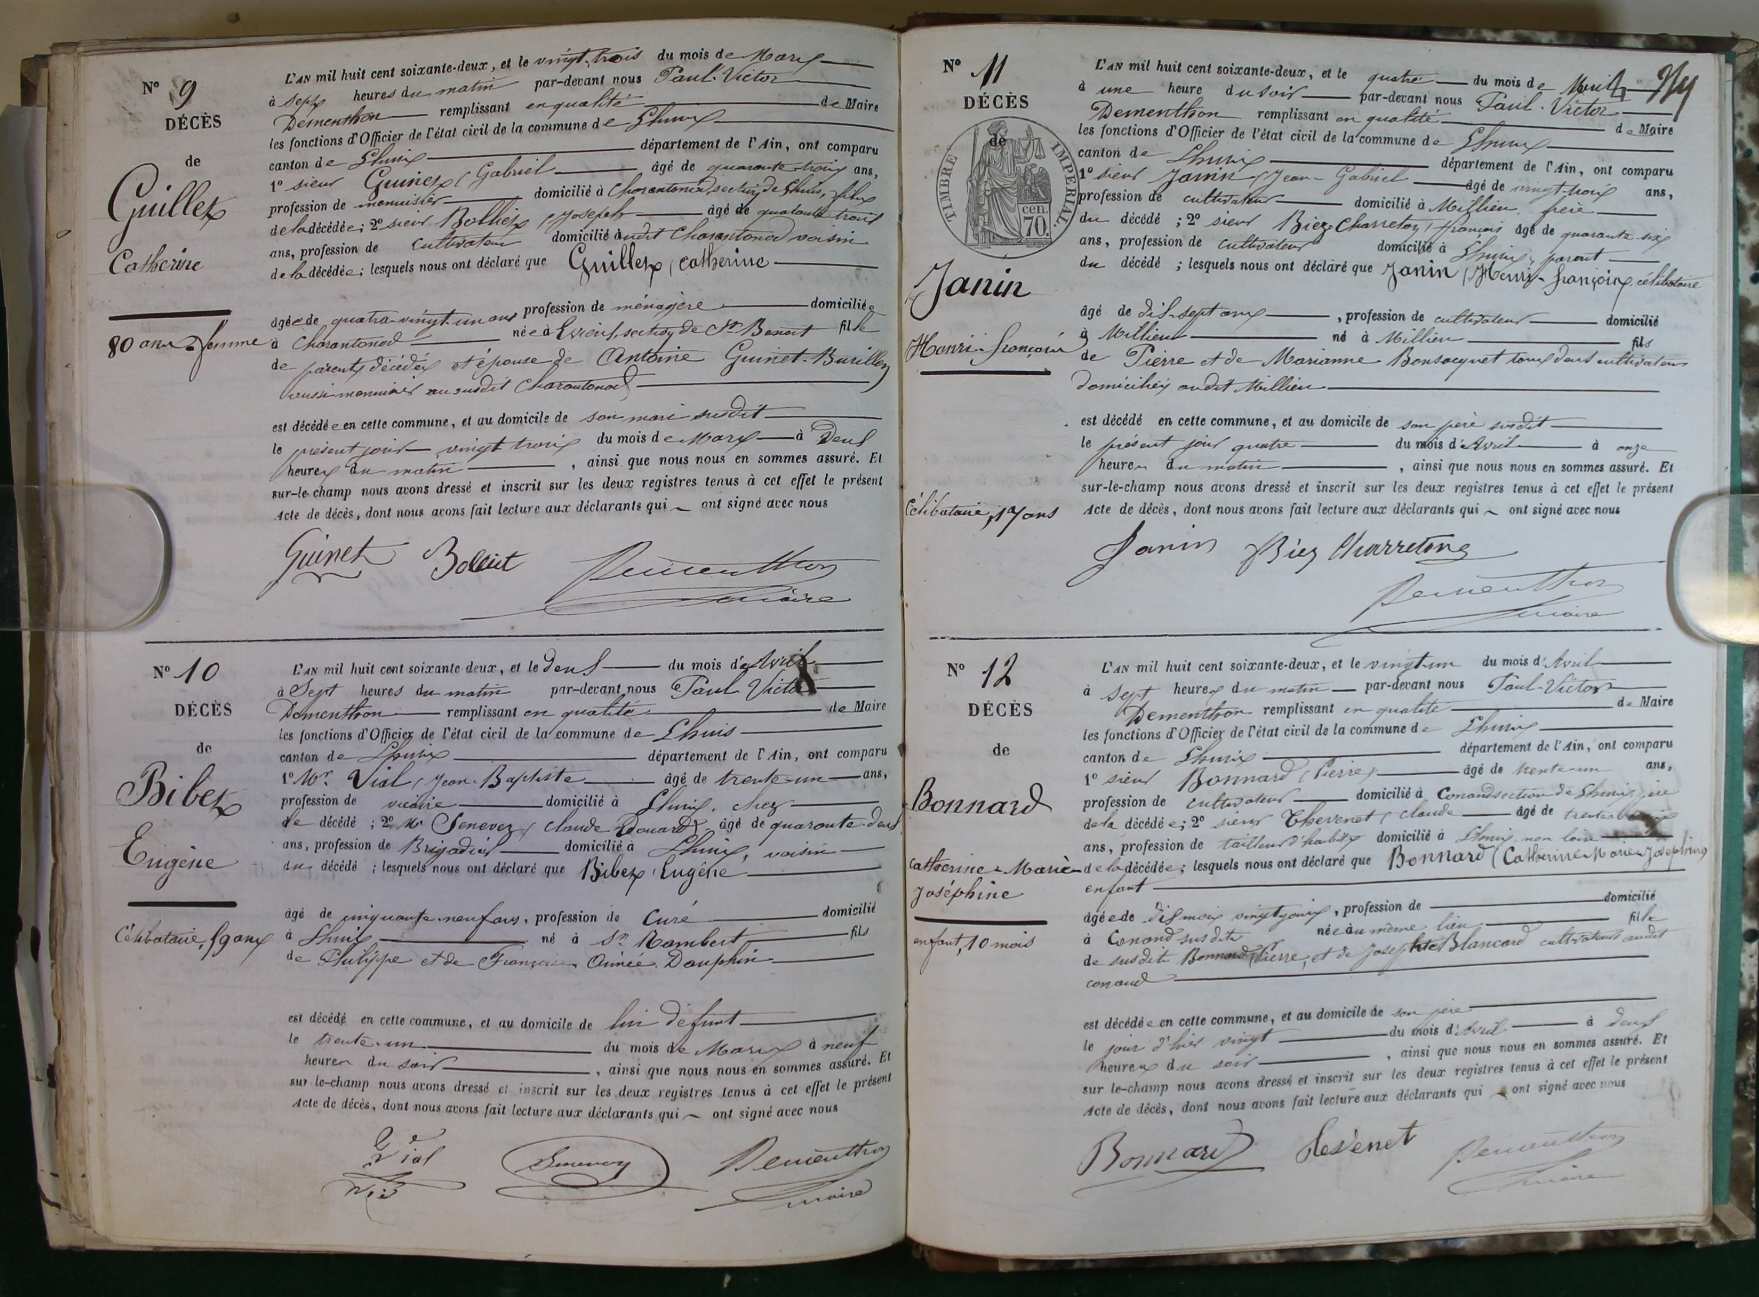 N° 9
DÉCÈS
de
Guillet
Catherine
80 ans femme
L'AN mil huit cent soixante-deux, et le vingt-trois du mois de Mars
à sept heures du matin par-devant nous Paul-Victor
Dementhon remplissant en qualité de Maire
les fonctions d'Officier de l'état civil de la commune de Lhuis
canton de Lhuis département de l'Ain, ont comparu
1° sieur Guinet (Gabriel) âgé de quarante-trois ans,
profession de menuisier domicilié à Charantonod, section de Lhuis, fils
de la décédée; 2° sieur Bolliet (Joseph) âgé de quarante trois
ans, profession de cultivateur domicilié audit Charantonod voisin
de la décédée; lesquels nous ont déclaré que Guillet (Catherine
âgée de quatre-vingt-un ans profession de ménagère domiciliée
à Charantonod née à section de St Benoit fille
de parents décédés et épouse de Antoine Guinet-Burillet
aussi menuisier au susdit Charantonod
est décédée en cette commune, et au domicile de son mari susdit
le présent jour vingt trois du mois de Mars à Deux
heures du matin , ainsi que nous nous en sommes assuré. Et
sur-le-champ nous avons dressé et inscrit sur les deux registres tenus à cet effet le présent
Acte de décès, dont nous avons fait lecture aux déclarants qui ont signé avec nous
Guinet Bolliet Dementhon
maire
N° 10
DÉCÈS
de
Bibet
Eugène
Célibataire, 59 ans
L'AN mil huit cent soixante deux, et le deux du mois d'Avril
à Sept heures du matin par-devant nous Paul Victor
Dementhon remplissant en qualité de Maire
les fonctions d'Officier de l'état civil de la commune de Lhuis
canton de Lhuis département de l'Ain, ont comparu
1° Mr. Vial (Jean-Baptiste âgé de trente-un ans,
profession de vicaire domicilié à Lhuis, chez
le décédé; 2° Mr Senevez (Claude Edouard) âgé de quarante-deux
ans, profession de Brigadier domicilié à Lhuis, voisin
du décédé; lesquels nous ont déclaré que Bibet (Eugène
âgé de cinquante-neuf ans, profession de Curé domicilié
à Lhuis né à St Rambert fils
de Philippe et de Françoise Aimée Dauphin
est décédé en cette commune, et au domicile de lui défunt
le trente-un du mois de Mars à neuf
heures du soir , ainsi que nous nous en sommes assuré. Et
sur le-champ nous avons dressé et inscrit sur les deux registres tenus à cet effet le présent
Acte de décès, dont nous avons fait lecture aux déclarants qui ont signé avec nous
Vial Dementhon
maire
N° 11
DÉCÈS
de
TIMBRE IMPERIAL.
cen.
70.
Janin
Henri-françois
Célibataire, 17 ans
L'AN mil huit cent soixante-deux, et le quatre du mois de Avril
à une heure du soir par-devant nous Paul-Victor
Dementhon remplissant en qualité de Maire
les fonctions d'Officier de l'état civil de la commune de Lhuis
canton de Lhuis département de l'Ain, ont comparu
1° sieur Janin (Jean-Gabriel âgé de vingt-trois ans,
profession de cultivateur domicilié à Millieu frère
du décédé; 2° sieur Biez Charreton (françois âgé de quarante six
ans, profession de cultivateur domicilié à Lhuis, parent
du décédé; lesquels nous ont déclaré que Janin (Henri-françois célibataire
âgé de dix-sept ans , profession de cultivateur domicilié
à Millieu né à Millieu fils
de Pierre et de Marianne Bonsacquet tous deux cultivateurs
domiciliés audit Millieu
est décédé en cette commune, et au domicile de son père susdit
le présent jour quatre du mois d'Avril à onze
heures du matin , ainsi que nous nous en sommes assuré. Et
sur-le-champ nous avons dressé et inscrit sur les deux registres tenus à cet effet le présent
Acte de décès, dont nous avons fait lecture aux déclarants qui ont signé avec nous
Janin Biez Charreton
Dementhon
maire
N° 12
DÉCÈS
de
Bonnard
Catherine-Marie-
Joséphine
enfant, 10 mois
L'AN mil huit cent soixante-deux, et le vingt-un du mois d'Avril
à sept heures du matin par-devant nous Paul-Victor
Dementhon remplissant en qualité de Maire
les fonctions d'Officier de l'état civil de la commune de Lhuis
canton de Lhuis département de l'Ain, ont comparu
1° sieur Bonnard (Pierre) âgé de trente-un ans,
profession de cultivateur domicilié à Conand section de Lhuis, père
de la décédée; 2° sieur Thevenet (Claude âgé de
ans, profession de tailleur d'habits domicilié à Lhuis non loin
de la décédée; lesquels nous ont déclaré que Bonnard (Catherine Marie Joséphine
enfant
âgée de dix mois vingt jours, profession de domicilié
à Conand susdit née au même lieu fille
de susdit Bonnard Pierre, et de Josephte Blancard cultivateurs audit
conand
est décédée en cette commune, et au domicile de son père
le jour d'hier vingt du mois d'Avril à deux
heures du soir , ainsi que nous nous en sommes assuré. Et
sur le-champ nous avons dressé et inscrit sur les deux registres tenus à cet effet le présent
Acte de décès, dont nous avons fait lecture aux déclarants qui ont signé avec nous
Bonnard Tevenet Dementhon
maire